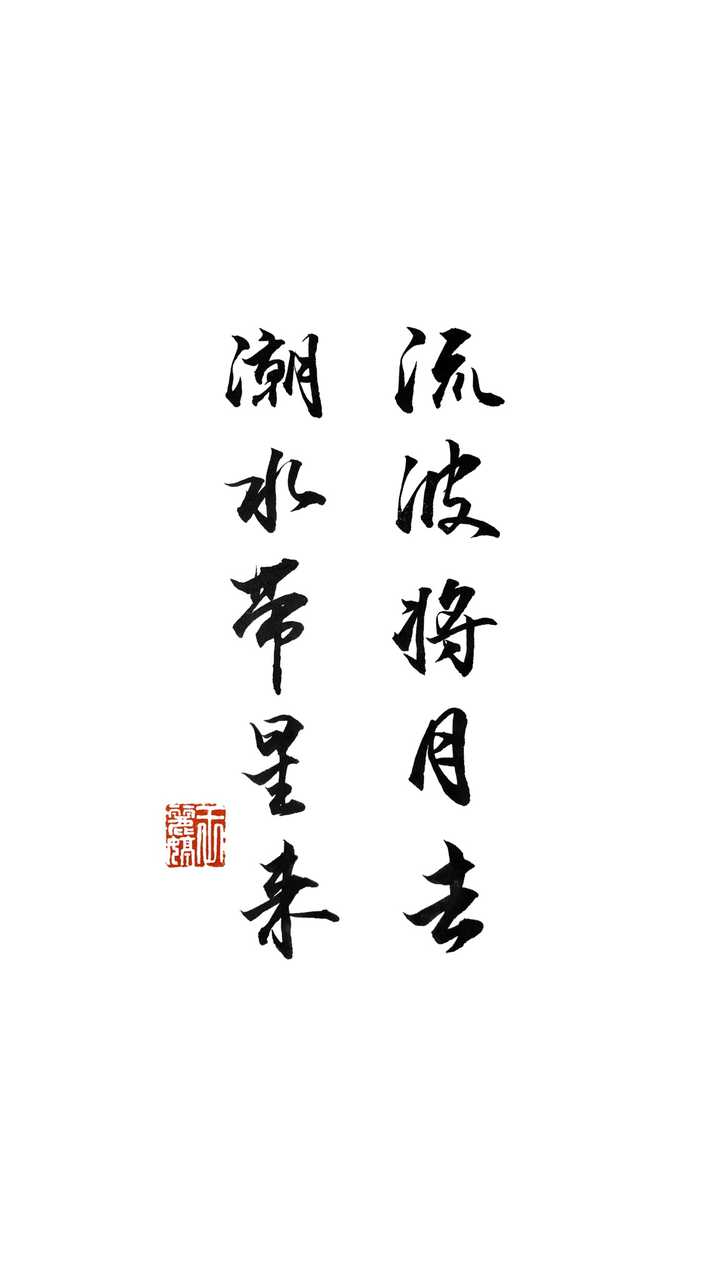 流波将月去
潮水带星来